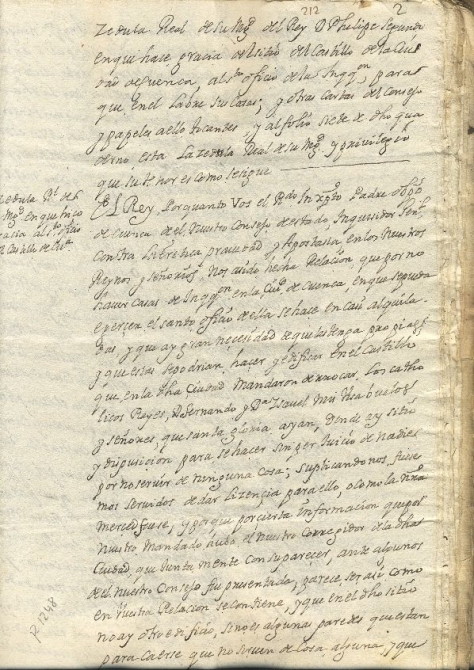 212
2
Zedula Real de su Mg.d del Rey D Phelipe Segundo
en que hace gracia del sitio del Castillo de la Ciu
dad de Cuenca al s.to officio de la Ynqq.on para
que en el labre sus casas; y otras Cartas del Consejo
y papeles a ello tocantes, y al folio siete de dho qua
derno esta la zedula Real de su Mg.d y privilegio
que su thenor es como se sigue
Zedula Rl. de S.
Mg.d en que hizo
gracia al s.to offo
El Rey, Por quanto Vos el Rdo In xpto Padre obpo
de Cuenca del nuestro Consejo de estado, Inquisidor Genl.
contra la heretica pravedad, y Apostasia en los Nuestros
Reynos, y señorios, Nos aveis hecho Relacion que por no
haver Casas de Inqq.on en la Ciud de Cuenca en que se pueda
exercer el santo officio de ella se hace en casas alquila
das, y que ay gran necesidad de que las tenga propias
y que estas se podrian hacer y edificar en el Castillo
que en la dha Ciudad mandaron derrocar los catho
licos Reyes, D Fernando, y Da Ysavel mis Visabuelos
y señores, que santa gloria ayan, donde ay sitio
y dispusicion para se hacer sin perjuicio de nadie
por no servir de ninguna cosa; suplicandonos fuese
mos servidos de dar lizencia para ello, o como la nra
merced fuese, y porque por cierta informacion que por
nuestro mandado huvo el nuestro Corregidor de la dha
Ciudad, que junta mente con su parecer, ante algunos
del nuestro Consejo fue presentada, parece ser asi como
en vuestra Relacion se contiene, y que en el dho sitio
no ay otro edificio, sino es algunas paredes que estan
para caerse que no sirven de cosa alguna, y que
R. 1248